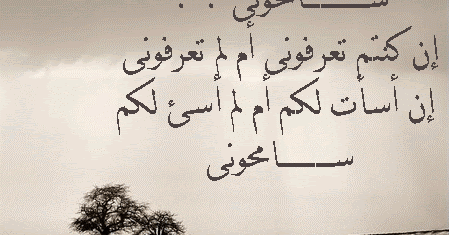 ســـــامحوني . . .
إن كنتم تعرفوني أم لم تعرفونى
إن أسأت لكم أم لم أسئ لكم
ســـــامحونى